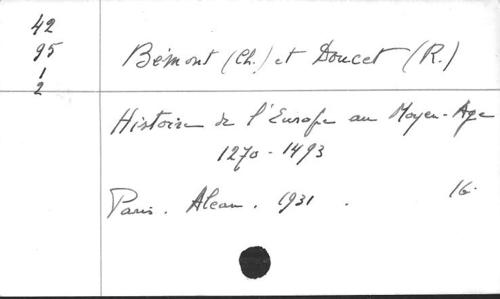 42
95
1
2
Bémont (Ch.) et Doucet (R.)
Histoire de l'Europe au Moyen-Age
1270-1493
Paris. Alcan. 1931. 16.